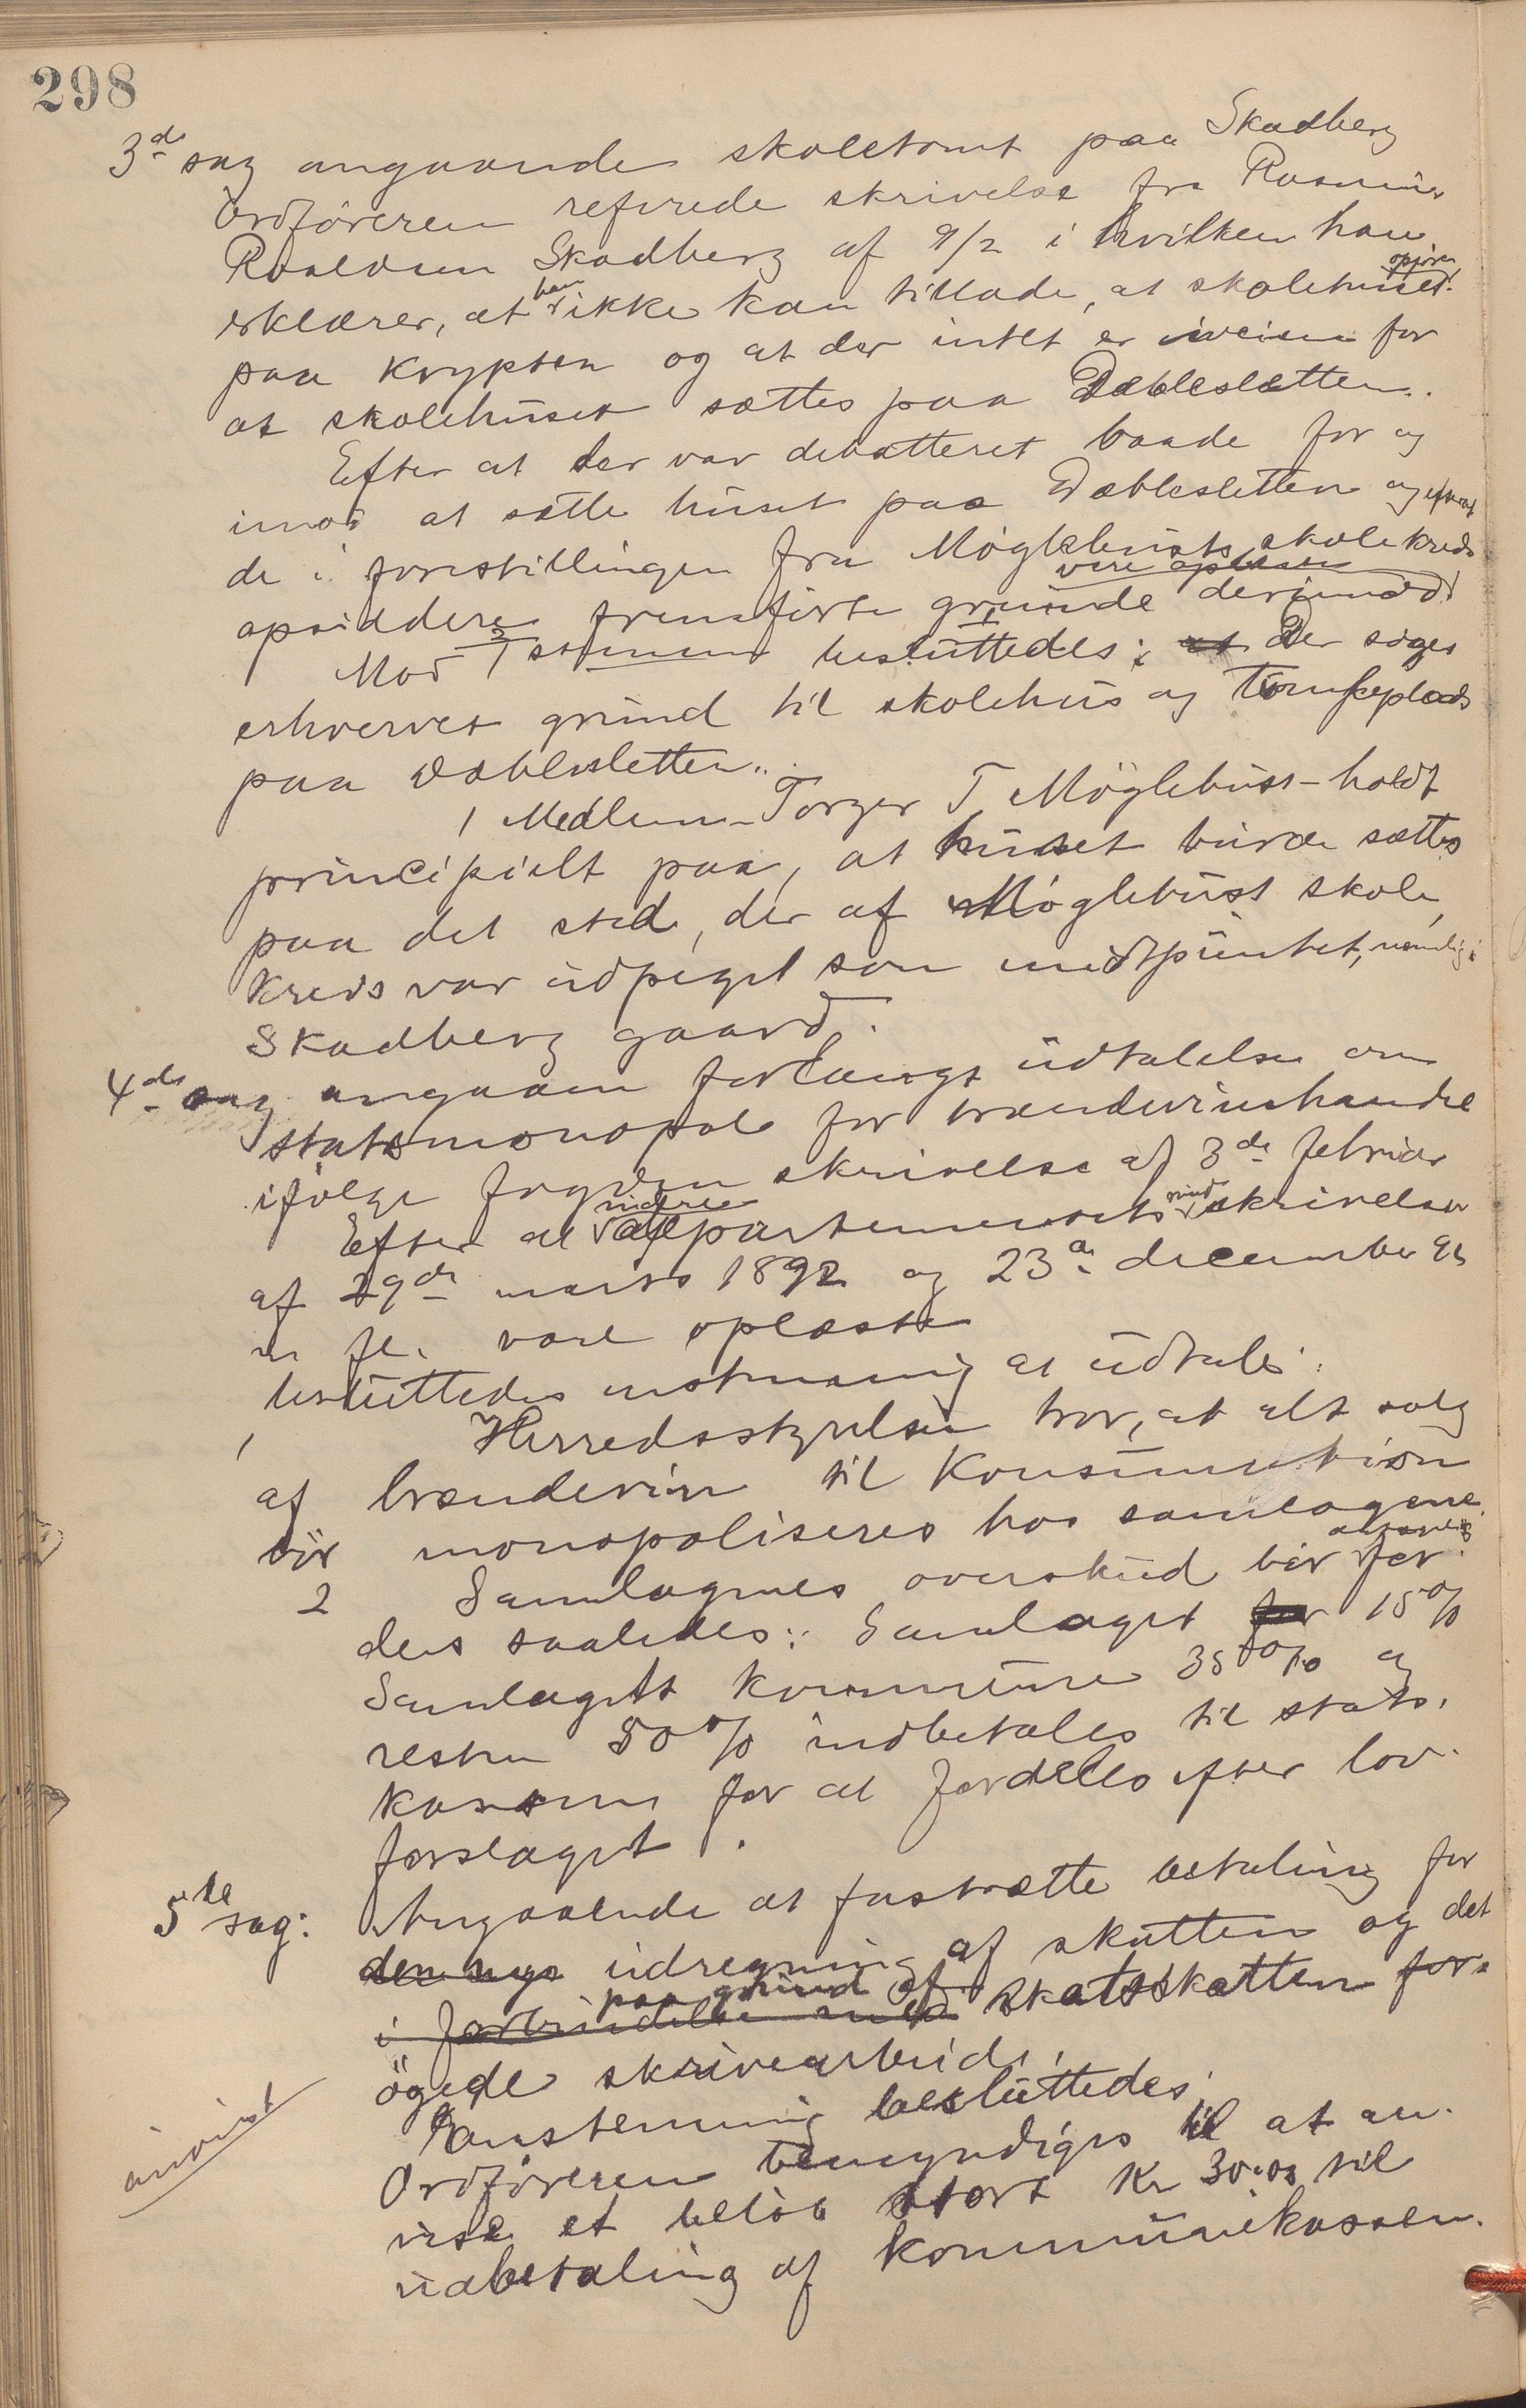 298
3de sag angaaende skoletomt paa Skadberg
Ordføreren refererede skrivelse fra Rasmus
Roaldsen Skadberg af 9/2 i hvilken han
erklærer, at han ikke kan tillade, at skolehuset opføres
paa Krypten og at der intet er iveien for
at skolehuset sættes paa Dablesletten.
Efter at der var debatteret baade for og
imod at sætte huset paa Dablesletten og efterat
de i forestillingen fra Møglebusts skolekreds
opsiddere fremførte grunde derimod vare oplæste
Mod 1 stemme besluttedes: Der søges
erhvervet grund til skolehus og tomteplads
paa Dablesletten.
1 Medlem Torger T Møglebust holdt
principielt paa, at huset burde sættes
paa det sted, der af Møglebust skole
kreds var udpeget som midtpunktet, nemlig i
Skadberg gaard.
4de sag angaaen forlangt udtalelse om
statsmonopol for brændevinshandel
ifølge fogdens skrivelse af 3de februar
Efter at indredepartementets rundskrivelser
af 29de marts 1892 og 23de december 95
m fl. vare oplæste
besluttedes enstemmig at udtale:
1 Herredsstyrelsen tror, at alt salg
af brændevin til Konsumtion
bør monopoliseres hos samlagene
2 Samlagenes overskud bør for
deles saaledes: Samlaget 15 %
Samlagets kommune 35 % og
resten 50 % indbetales til stats
kassen for at fordeles efter lov
forslaget.
5te sag: Angaaende at fastsætte betaling for
den nye udregning af skatten og det
i forbindelse med paa grund af skatsskatten for
øgede skrivearbeide.
Enstemmig besluttedes
Ordføreren bemyndiges til at an
anvist
vise et beløb stort Kr 30.00 til
udbetaling af kommunekassen.